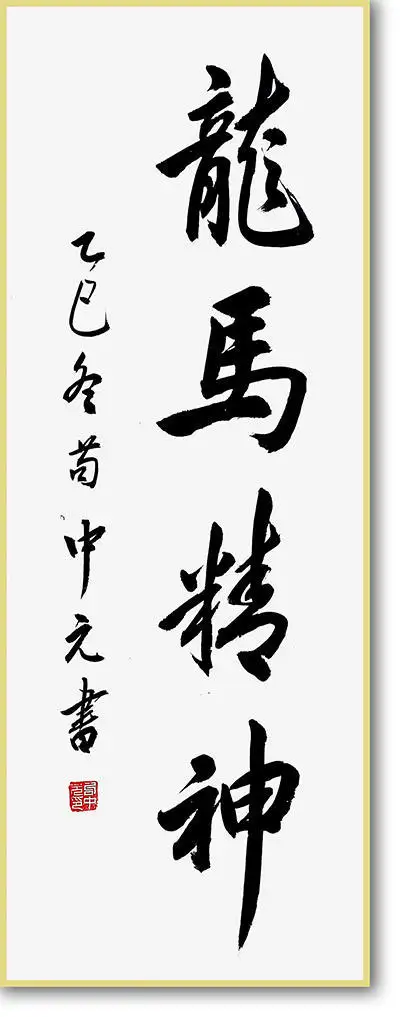 龍馬精神
乙巳冬苟中元書